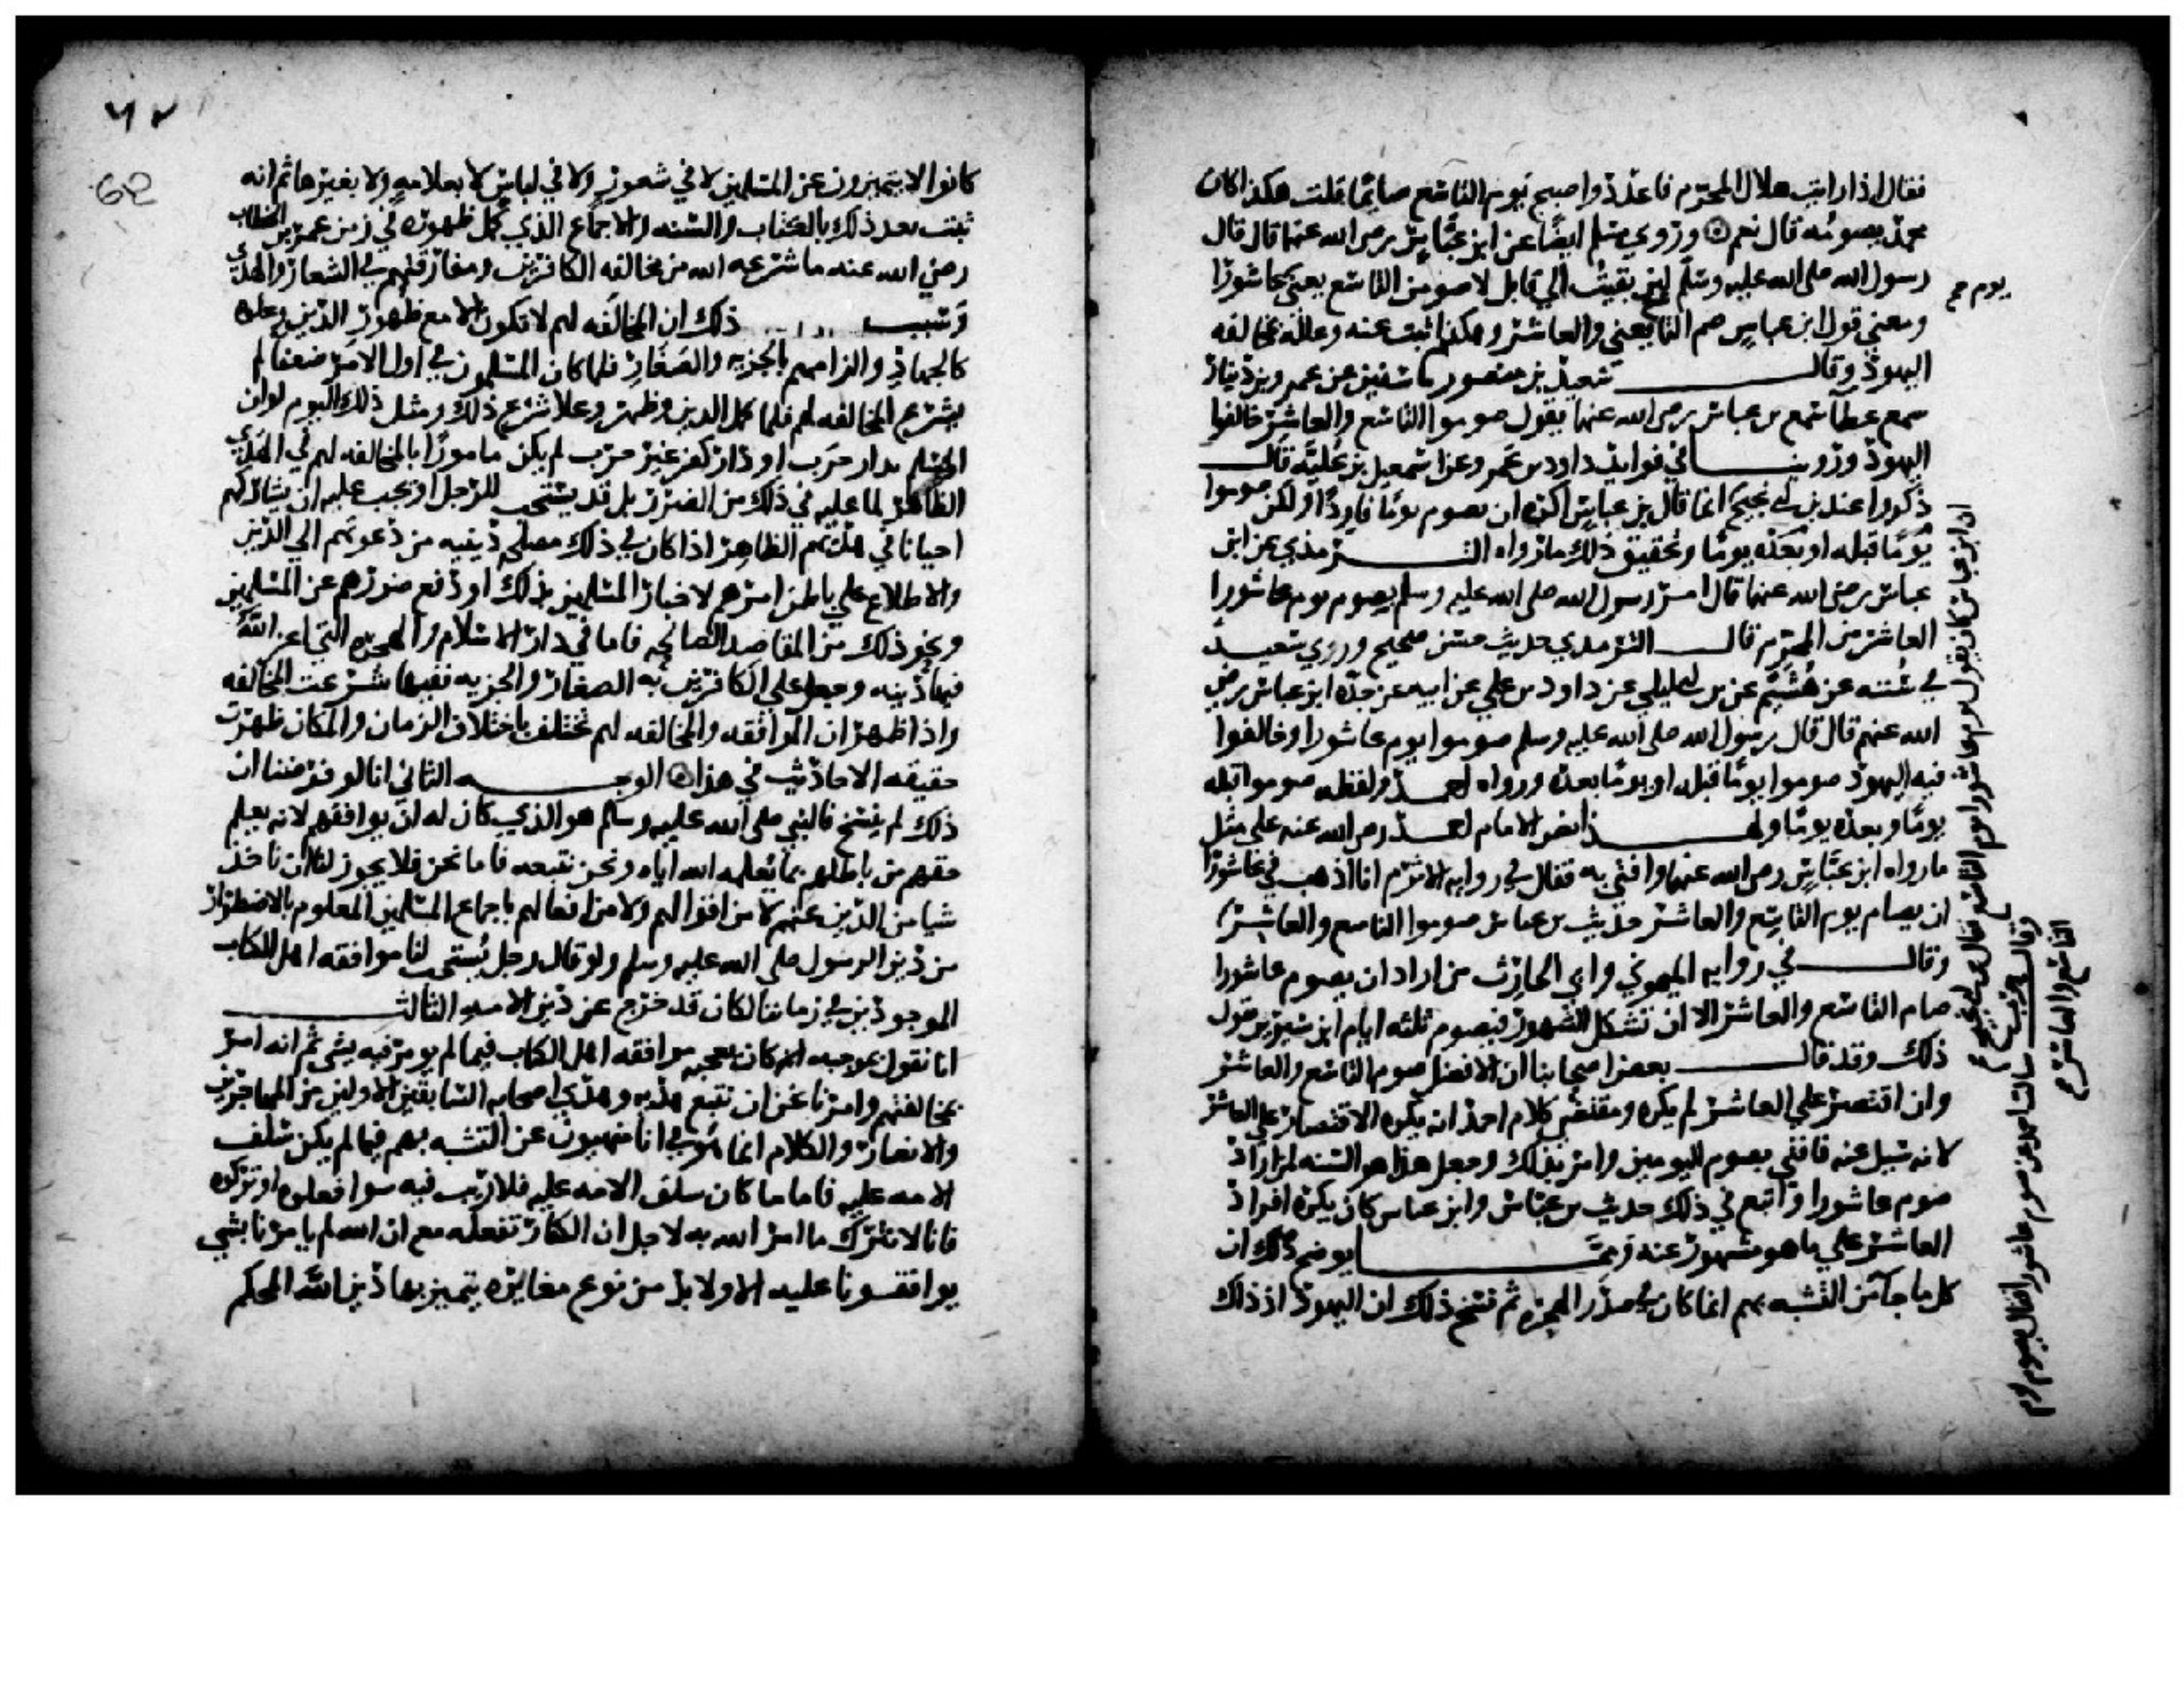 فقال اذا رايت هلال المحرم فاعدد واصبح يوم التاسع صائما قلت هكذا كان
محمد يصومه قال نعم وروي مسلم ايضا عن ابن عباس رضي الله عنهما قال قال
رسول الله صلى الله عليه وسلم لئن بقيت الي قابل لاصومن التاسع يعني عاشورا
ومعني قول ابن عباس صم التاسع يعني والعاشر وهكذا ثبت عنه وعلله بمخالفه
اليهود وقال سعيد بن منصور ما سفين عن عمرو بن دينار
سمع عطا سمع بن عباس رضي الله عنهما يقول صوموا التاسع والعاشر خالفوا
اليهود وروينا في فوايد داود بن عمرو عن اسمعيل بن علية قال
ذكروا عند بن ابي نجيح انما قال بن عباس اكره ان يصوم يوما فاردا ولكن صوموا
يوما قبله او بعده يوما وتحقيق ذلك ما رواه الترمذي عن ابن
عباس رضي الله عنهما قال امر رسول الله صلى الله عليه وسلم بصوم يوم عاشورا
العاشر من المحرم قال الترمدي حديث حسن صحيح وروي سعيد
في سننه عن هشيم عن بن ابي ليلي عن داود بن علي عن ابيه عن جده ابن عباس رضي
الله عنهم قال قال رسول الله صلى الله عليه وسلم صوموا يوم عاشورا وخالفوا
فيه اليهود صوموا يوما قبله او يوما بعده ورواه احمد ولفظه صوموا قبله
يوما وبعده يوما ولهذا نص الامام احمد رضي الله عنه علي مثل
ما رواه ابن عباس رضي الله عنهما وافتي به فقال في روايه الاثرم انا اذهب في عاشورا
ان يصام يوم التاسع والعاشر حديث بن عباس صوموا التاسع والعاشر
وقال في روايه الميموني وابي الحارث من اراد ان يصوم عاشورا
صام التاسع والعاشر الا ان تشكل الشهور فيصوم ثلثه ايام ابن سيرين يقول
ذلك وقد قال بعض اصحابنا ان الافضل صوم التاسع والعاشر
وان اقتصر علي العاشر لم يكره ومقتضي كلام احمد انه يكره الاقتصار علي العاشر
لانه سيل عنه فافتي بصوم اليومين وامر بذلك وجعل هذا هو السنه لمن اراد
صوم عاشورا واتبع في ذلك حديث بن عباس وابن عباس كان يكره افراد
العاشر علي ما هو مشهور عنه ومما يوضح ذلك ان
كل ما جا من التشبه بهم انما كان في صدر الهجره ثم نسخ ذلك ان اليهود اذ ذاك
يوم صح
التاسع والعاشر صح
٦٢
62
كانوا لا يتميزون عن المسلمين لا في شعور ولا في لباس لا بعلامه ولا بغيرها ثم انه
ثبت بعد ذلك بالكتاب والسنه والاجماع الذي كمل ظهوره في زمن عمر بن الخطاب
رضي الله عنه ما شرعه الله من مخالفه الكافرين ومفارقتهم في الشعار والهدي
وسبب ذلك ان المخالفه لهم لا تكون الا مع ظهور الدين وعلوه
كالجهاد والزامهم بالجزيه والصغار فلما كان المسلمون في اول الامر ضعفا لم
يشرع المخالفه لهم فلما كمل الدين وظهر وعلا شرع ذلك ومثل ذلك اليوم لو ان
المسلم بدار حرب او دار كفر غير حرب لم يكن مامورا بالمخالفه لهم في الهدي
الظاهر لما عليه في ذلك من الضرر بل قد يستحب للرجل او يجب عليه ان يشاركهم
احيانا في هديهم الظاهر اذا كان في ذلك مصلحه دينيه من دعوتهم الي الدين
والاطلاع علي باطن امرهم لاخبار المسلمين بذلك او دفع ضررهم عن المسلمين
ونحو ذلك من المقاصد الصالحه فاما في دار الاسلام والهجره التي اعز الله
فيها دينه وجعل علي الكافرين به الصغار والجزيه ففيها شرعت المخالفه
واذا ظهر ان الموافقه والمخالفه لهم تختلف باختلاف الزمان والمكان ظهرت
حقيقه الاحاديث في هذا الوجه الثاني انا لو فرضنا ان
ذلك لم ينسخ فالنبي صلى الله عليه وسلم هو الذي كان له ان يوافقهم لانه يعلم
حقهم من باطلهم بما يعلمه الله اياه ونحن نتبعه فاما نحن فلا يجوز لنا ان ناخذ
شيا من الدين عنهم لا من اقوالهم ولا من افعالهم باجماع المسلمين المعلوم بالاضطرار
من دين الرسول صلى الله عليه وسلم ولو قال رجل يستحب لنا موافقه اهل الكتاب
الموجودين في زماننا لكان قد خرج عن دين الامه الثالث
انا نقول بموجبه كان يعجبه موافقه اهل الكتاب فيما لم يومر فيه بشي ثم انه امر
بمخالفتهم وامرنا نحن ان نتبع هديه وهدي اصحابه السابقين الاولين من المهاجرين
والانصار والكلام انما هو في انا منهيون عن التشبه بهم فيما لم يكن سلف
الامه عليه فاما ما كان سلف الامه عليه فلا ريب فيه سوا فعلوه او تركوه
فانا لا نترك ما امر الله به لاجل ان الكفار تفعله مع ان الله لم يامرنا بشي
يوافقونا عليه الا ولا بد من نوع مغايره يتميز بها دين الله المحكم